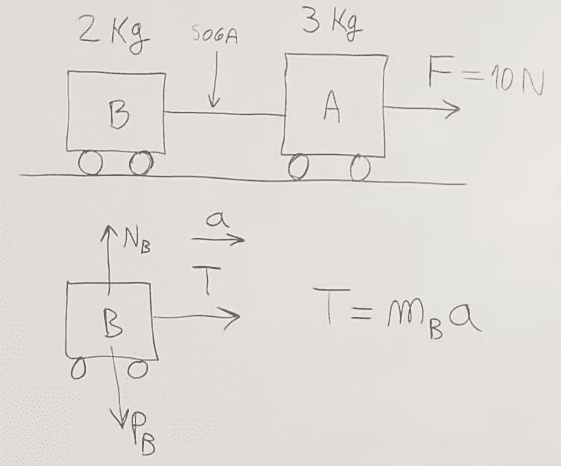 2 Kg
SOGA
3 Kg
B
A
F = 10 N
N_B
a
T
B
T = m_B a
P_B